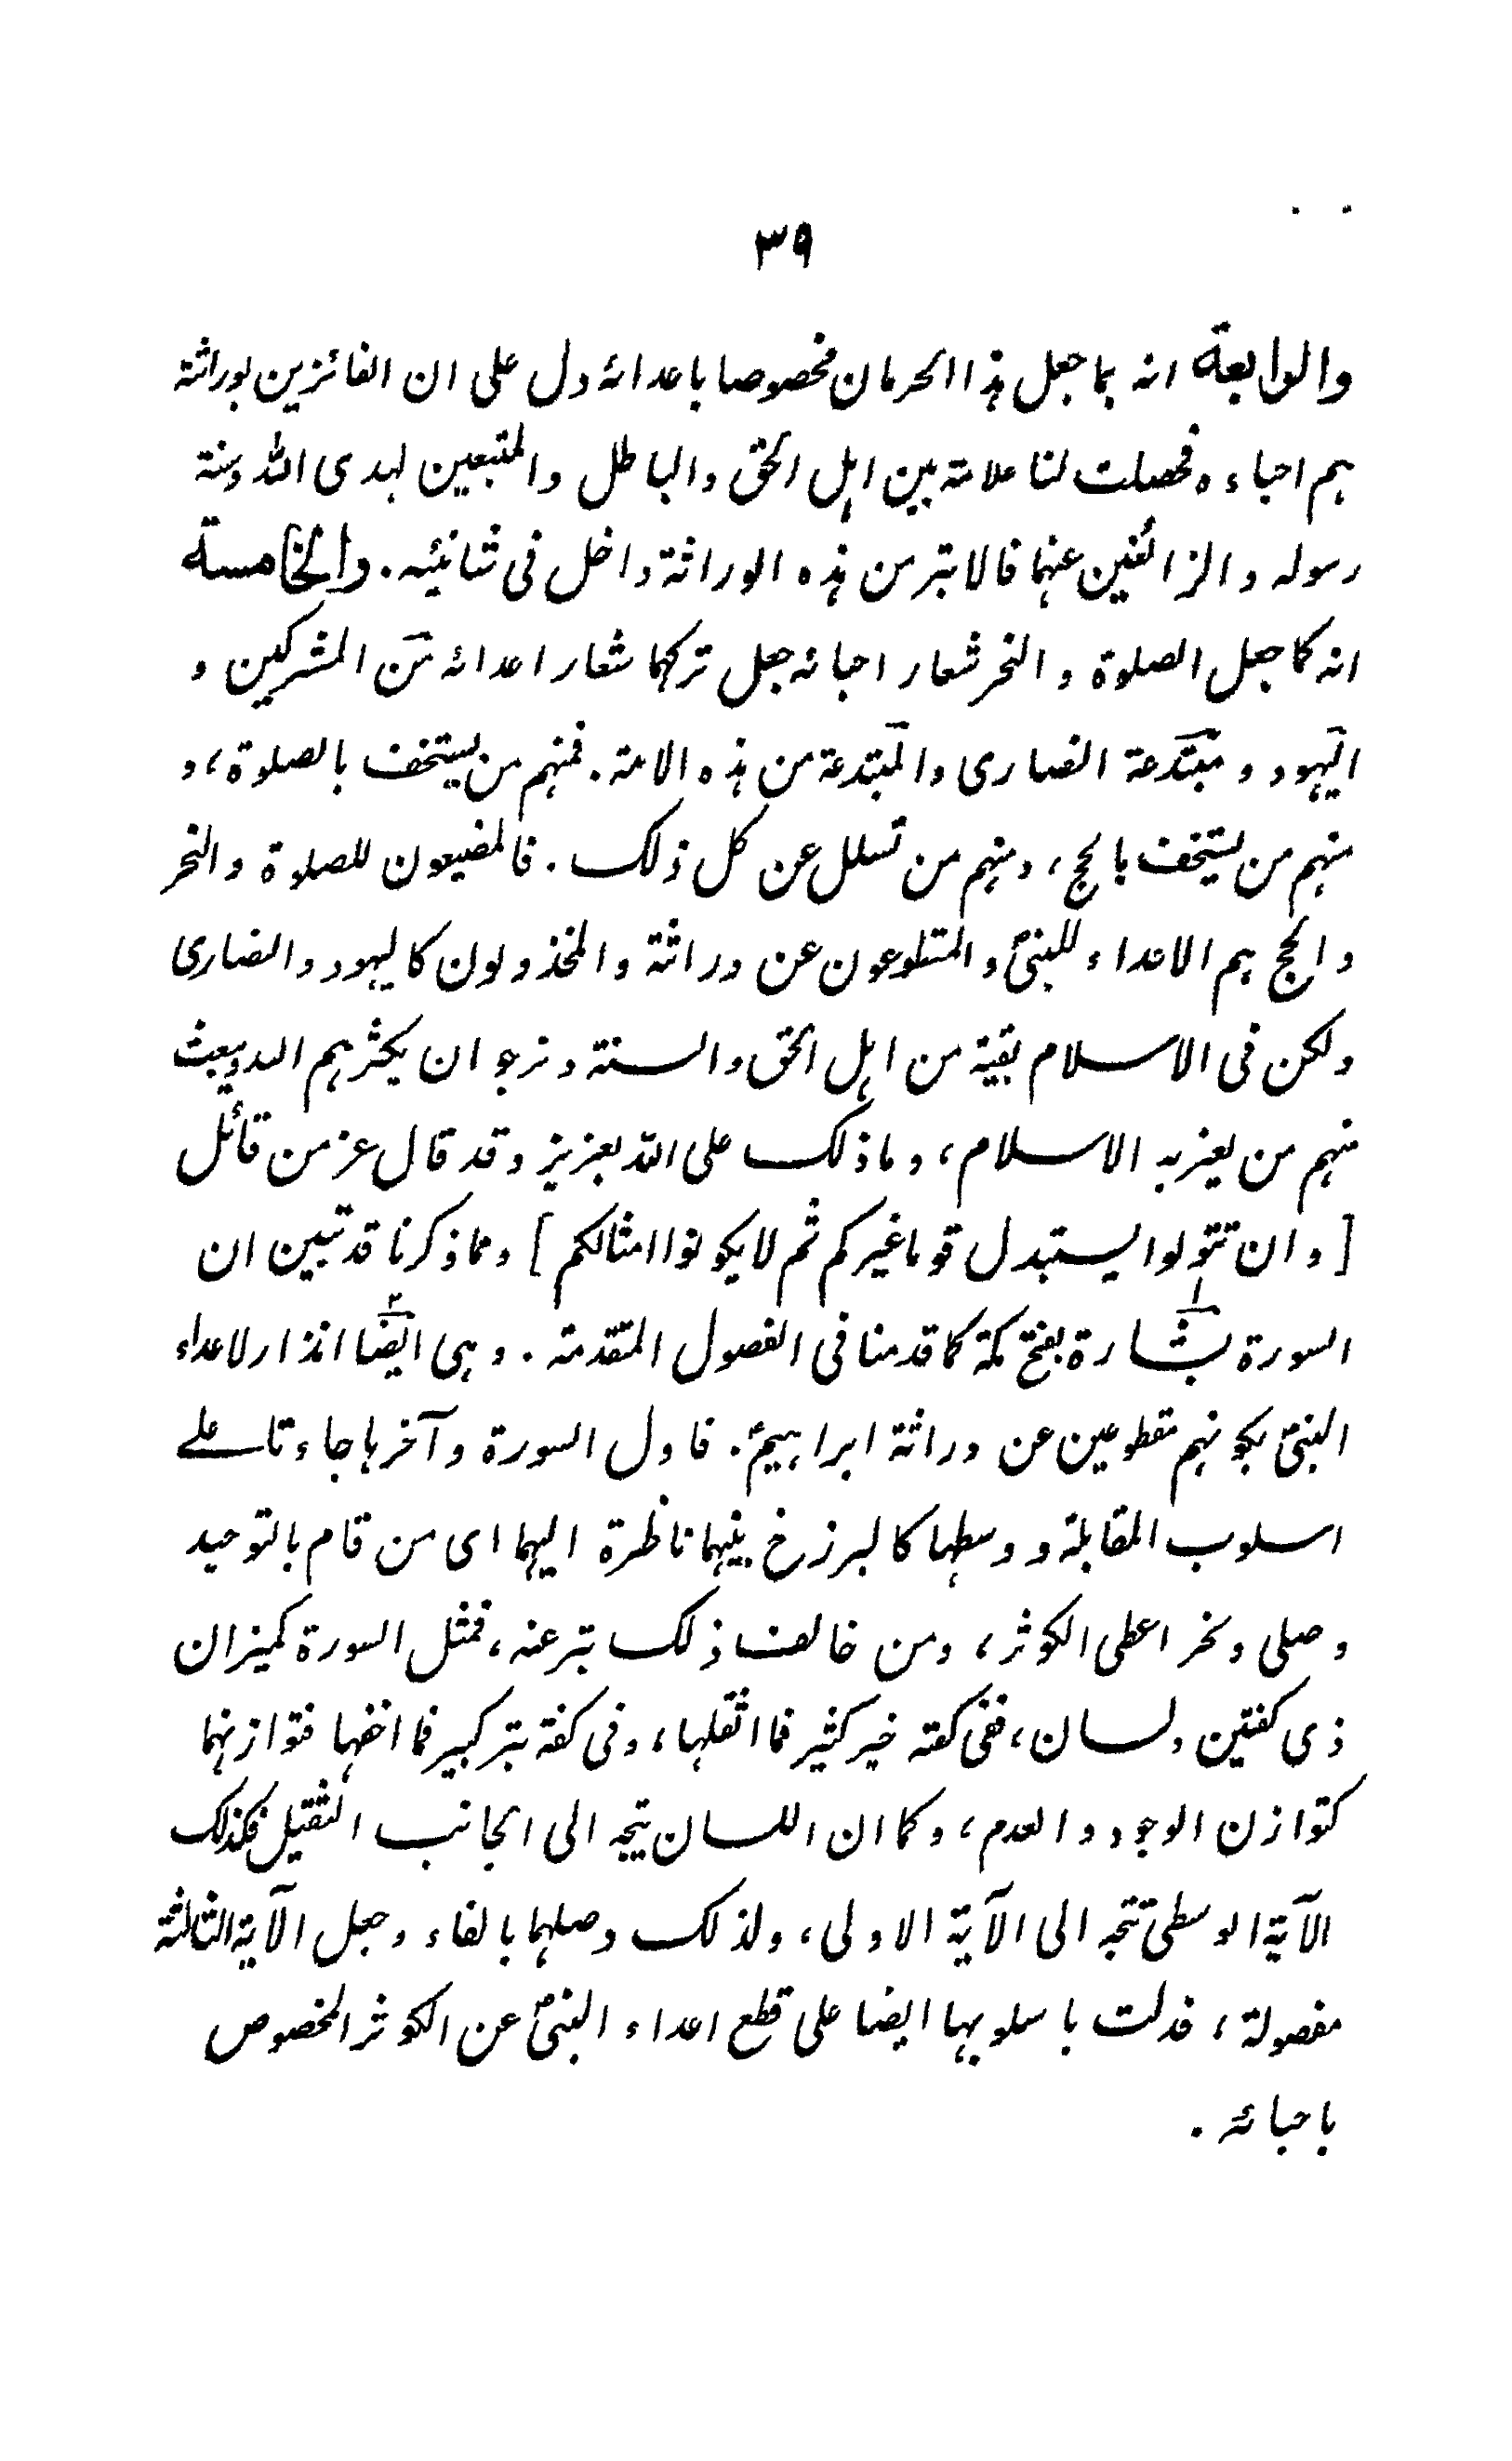 ٣٩
والرابعة انه بما جعل هذا الحرمان مخصوصا باعدائه دل على ان الفائزين بوراثته
هم احباءه فحصلت لنا علامة بين اهل الحق والباطل والمتبعين لهدى الله وسنة
رسوله والزائغين عنهما فالابتر من هذه الوراثة داخل فى شانئيه. والخامسة
انه كما جعل الصلوة والنحر شعار احبائه جعل تركهما شعار اعدائه من المشركين و
اليهود ومبتدعة النصارى والمبتدعة من هذه الامة. فمنهم من يستخف بالصلوة، و
منهم من يستخف بالحج، ومنهم من تسلل عن كل ذلك. فالمضيعون للصلاة والنحر
والحج هم الاعداء للنبىؐ والمقطوعون عن وراثة والمخذولون كاليهود والنصارى
ولكن فى الاسلام بقية من اهل الحق والسنة ونرجو ان يكثرهم الله ويبعث
منهم من يعز به الاسلام، وما ذلك على الله بعزيز وقد قال عز من قائل
[وان تتولوا يستبدل قوما غيركم ثم لا يكونوا امثالكم] ومما ذكرنا قد تبين ان
السورة بشارة بفتح مكة كما قدمنا فى الفصول المتقدمة. وهى ايضا انذار لاعداء
النبىؐ بكونهم مقطوعين عن وراثة ابراهيمؑ. فاول السورة وآخرها جاءتا على
اسلوب المقابلة ووسطها كالبرزخ بينهما ناظرة اليهما اى من قام بالتوحيد
وصلى ونحر اعطى الكوثر، ومن خالف ذلك بتر عنه، فمثل السورة كميزان
ذى كفتين ولسان، ففى كفته خير كثير فما اثقلها، وفى كفة بتر كبير فما اخفها فتوازنهما
كتوازن الوجود والعدم، وكما ان اللسان يتجه الى الجانب الثقيل فكذلك
الآية الوسطى تتجه الى الآية الاولى، ولذلك وصلهما بالفاء وجعل الآية الثالثة
مفصولة، فدلت باسلوبها ايضا على قطع اعداء النبىؐ عن الكوثر المخصوص
باحبائه.